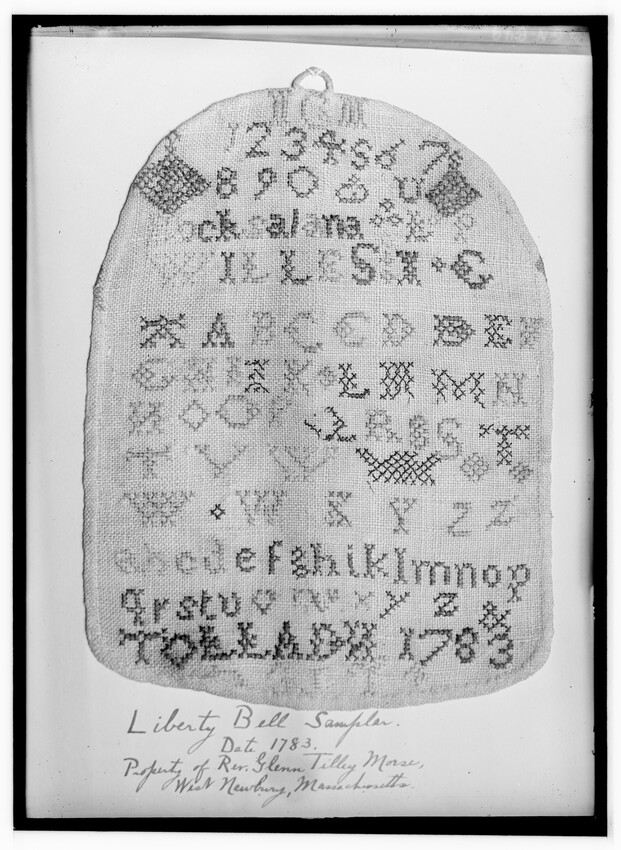 1234567
890 & U
ocksalana & E P
ILLEST · C
A A B C C D D E F
G H I I K L M M N
N O O P Q R S S T
T V V
W W X Y Z Z
abcdefghiklmnop
qrstuv w x y z &
TOLLADH 1783
Liberty Bell Sampler.
Date 1783.
Property of Rev. Glenn Tilley Morse,
West Newbury, Massachusetts.